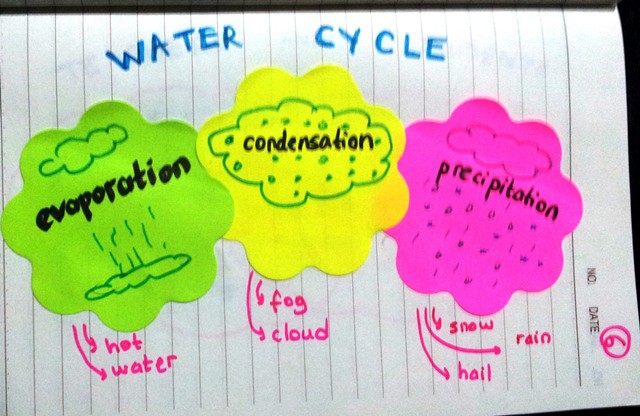 WATER CYCLE
evaporation
condensation
precipitation
hot
water
fog
cloud
snow
rain
hail
NO.
DATE
6